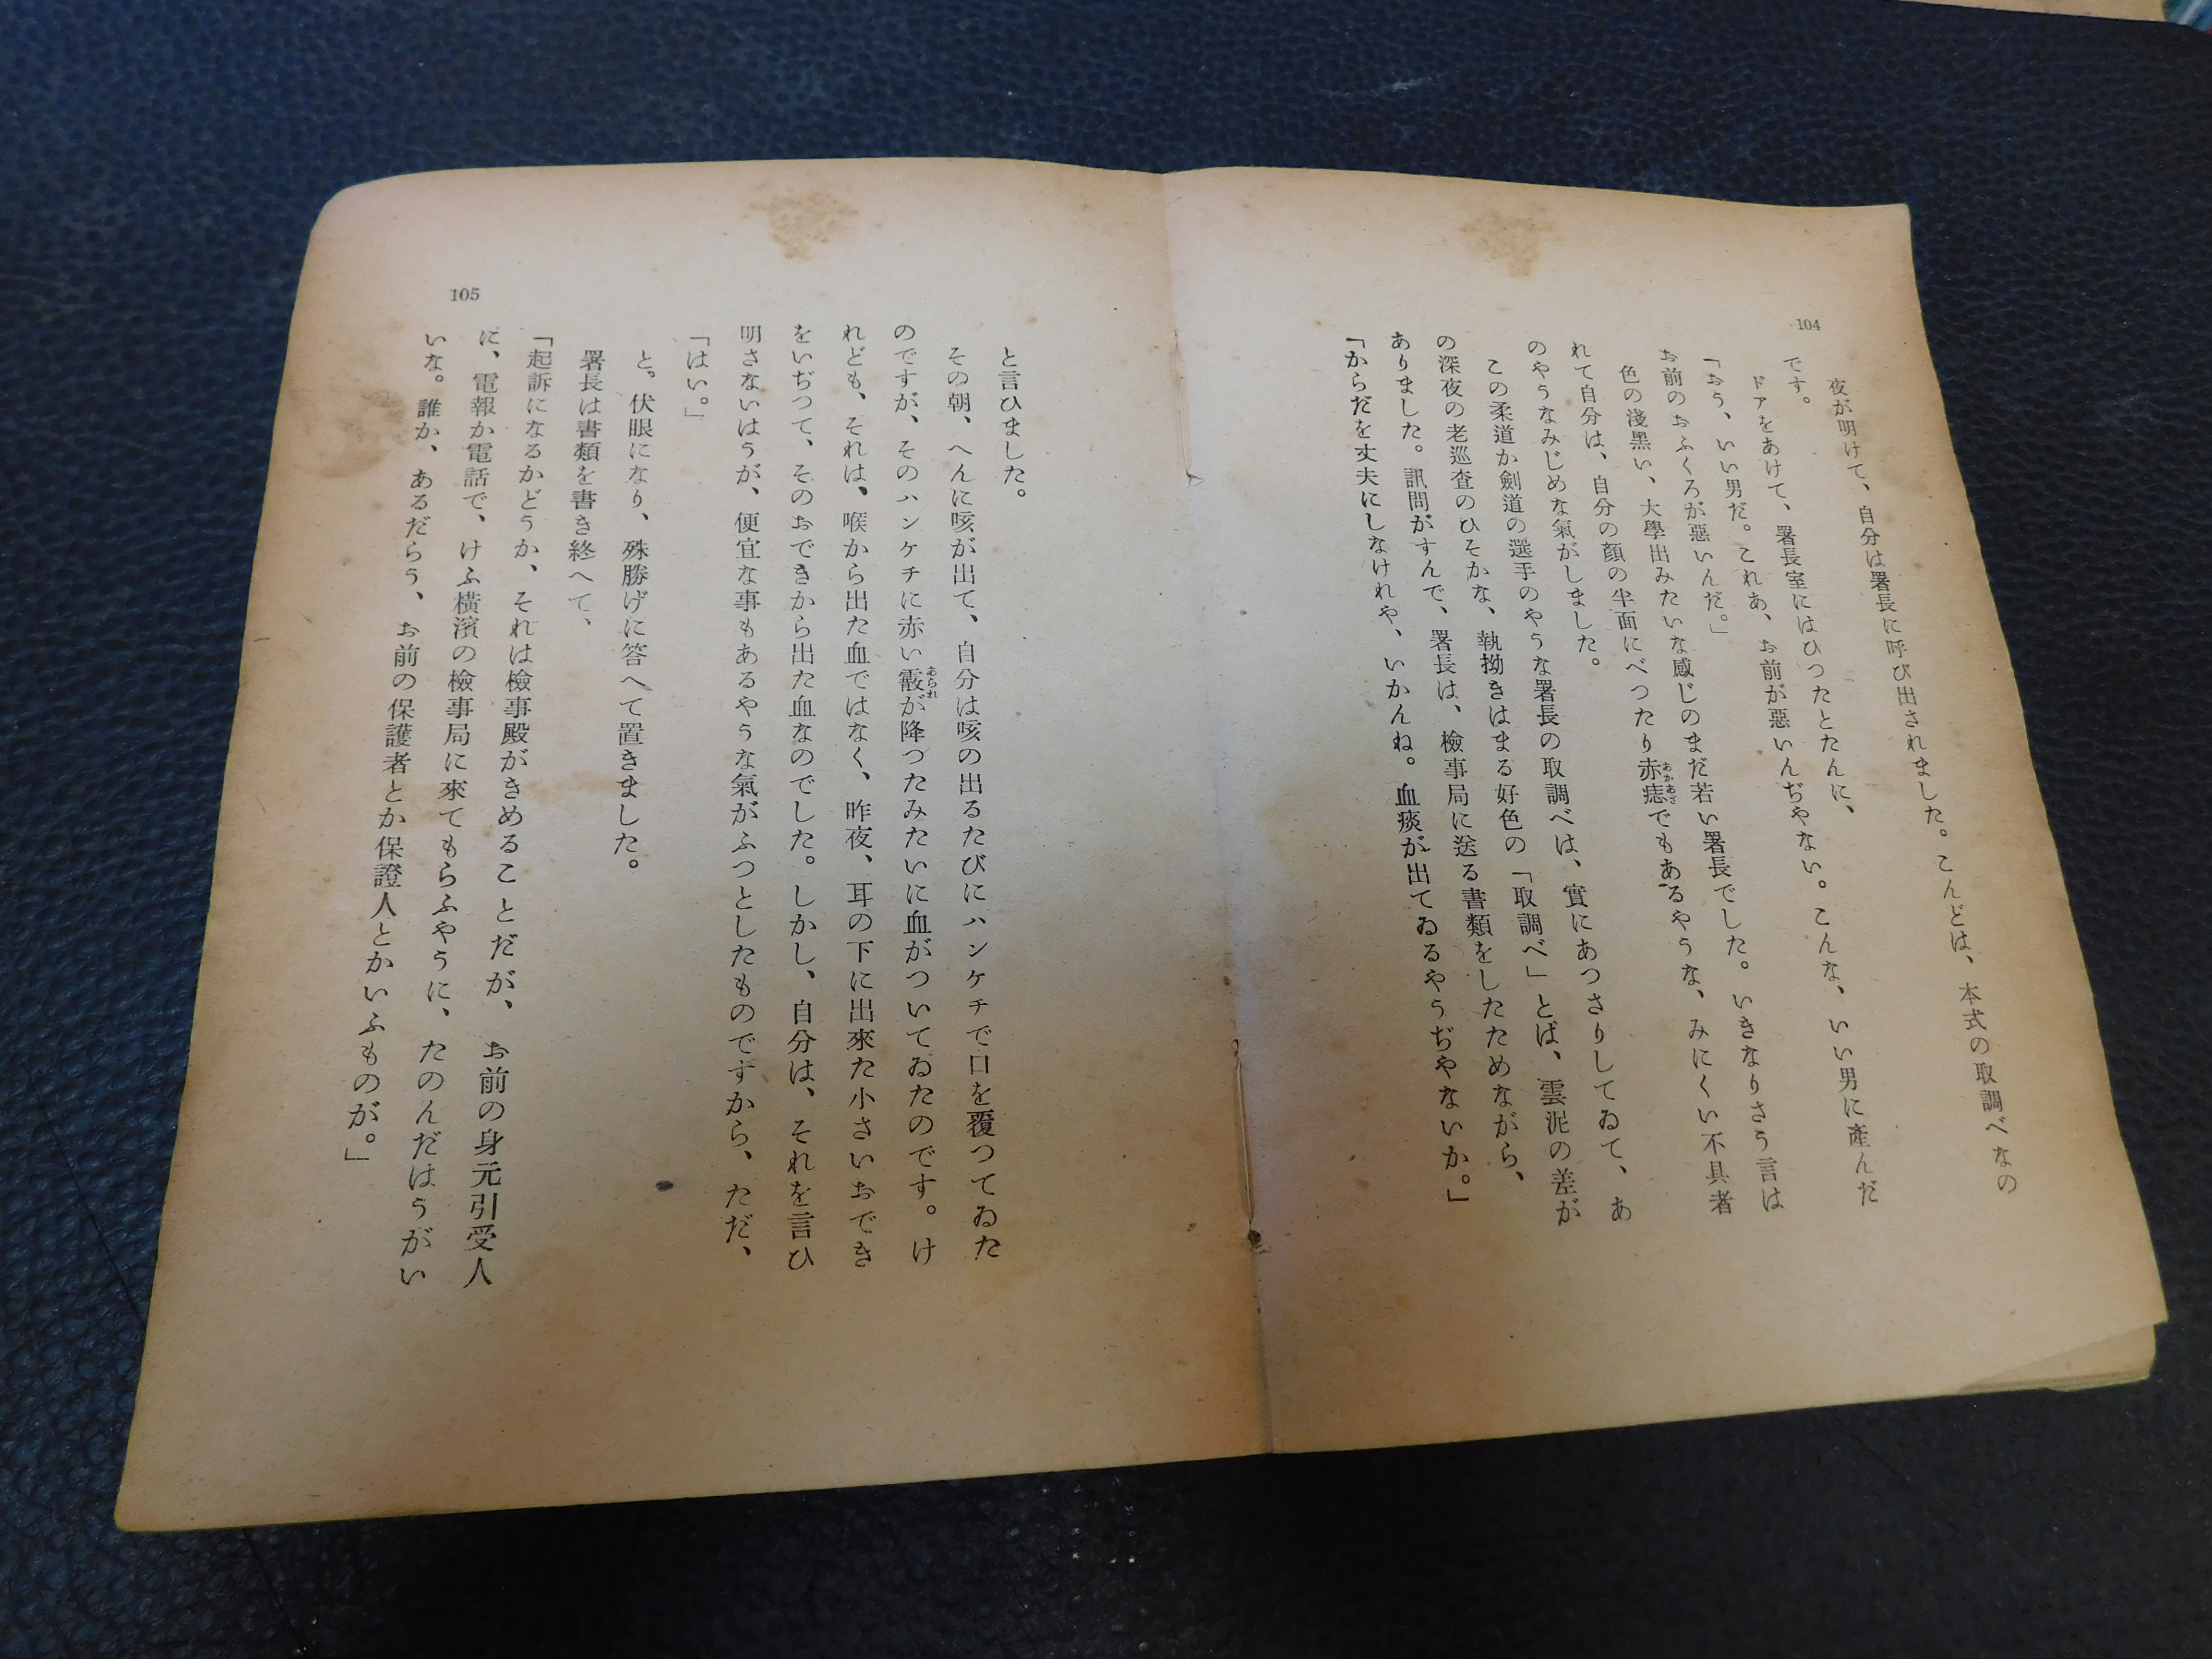 104
夜が明けて、自分は署長に呼び出されました。こんどは、本式の取調べなの
です。
ドアをあけて、署長室にはひつたとたんに、
「おう、いい男だ。これあ、お前が惡いんぢやない。こんな、いい男に產んだ
お前のおふくろが惡いんだ。」
色の淺黑い、大學出みたいな感じのまだ若い署長でした。いきなりさう言は
れて自分は、自分の顏の半面にべつたり赤痣でもあるやうな、みにくい不具者
あかあざ
のやうなみじめな氣がしました。
この柔道か劍道の選手のやうな署長の取調べは、實にあつさりしてゐて、あ
の深夜の老巡査のひそかな、執拗きはまる好色の「取調べ」とは、雲泥の差が
ありました。訊問がすんで、署長は、檢事局に送る書類をしたためながら、
「からだを丈夫にしなけれや、いかんね。血痰が出てゐるやうぢやないか。」
105
と言ひました。
その朝、へんに咳が出て、自分は咳の出るたびにハンケチで口を覆つてゐた
のですが、そのハンケチに赤い霰が降つたみたいに血がついてゐたのです。け
あられ
れども、それは、喉から出た血ではなく、昨夜、耳の下に出來た小さいおでき
をいぢつて、そのおできから出た血なのでした。しかし、自分は、それを言ひ
明さないはうが、便宜な事もあるやうな氣がふつとしたものですから、ただ、
「はい。」
と。伏眼になり、殊勝げに答へて置きました。
署長は書類を書き終へて、
「起訴になるかどうか、それは檢事殿がきめることだが、お前の身元引受人
に、電報か電話で、けふ橫濱の檢事局に來てもらふやうに、たのんだはうがい
いな。誰か、あるだらう、お前の保護者とか保證人とかいふものが。」